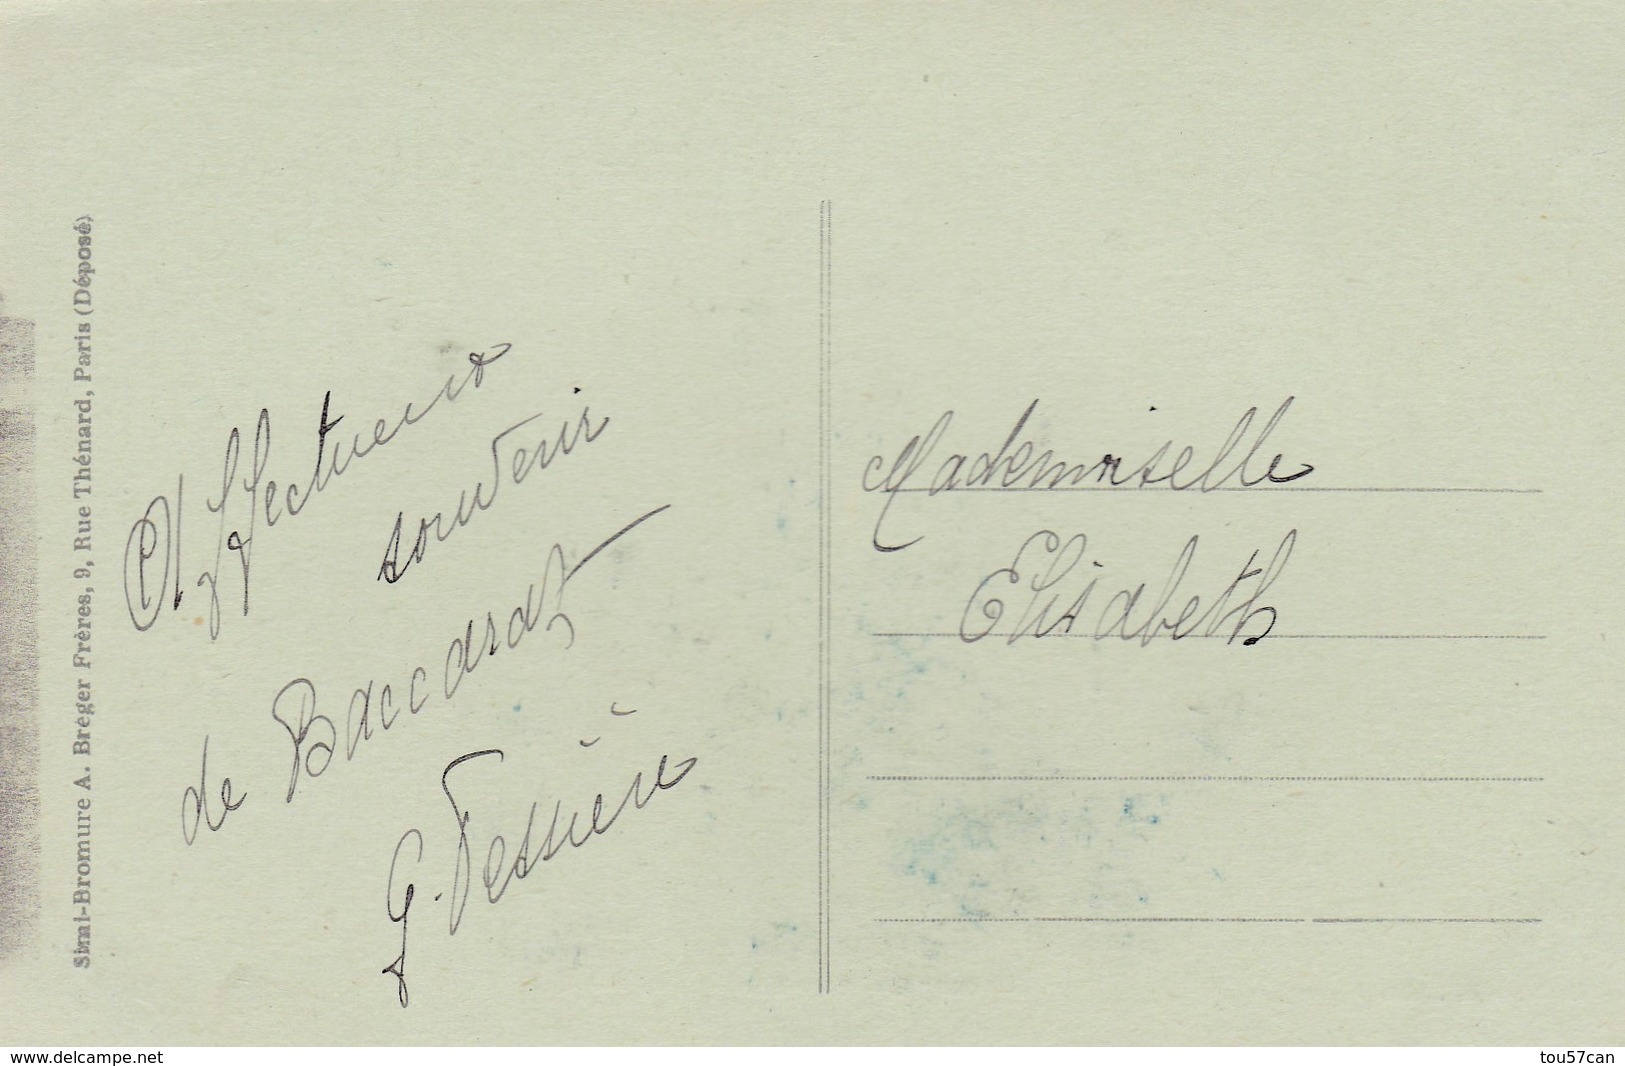 Simi-Bromure A. Breger Frères, 9, Rue Thénard, Paris (Déposé)
Affectueux
souvenir
de Baccarat
G. Tessière
Mademoiselle
Elisabeth
www.delcampe.net
tou57can